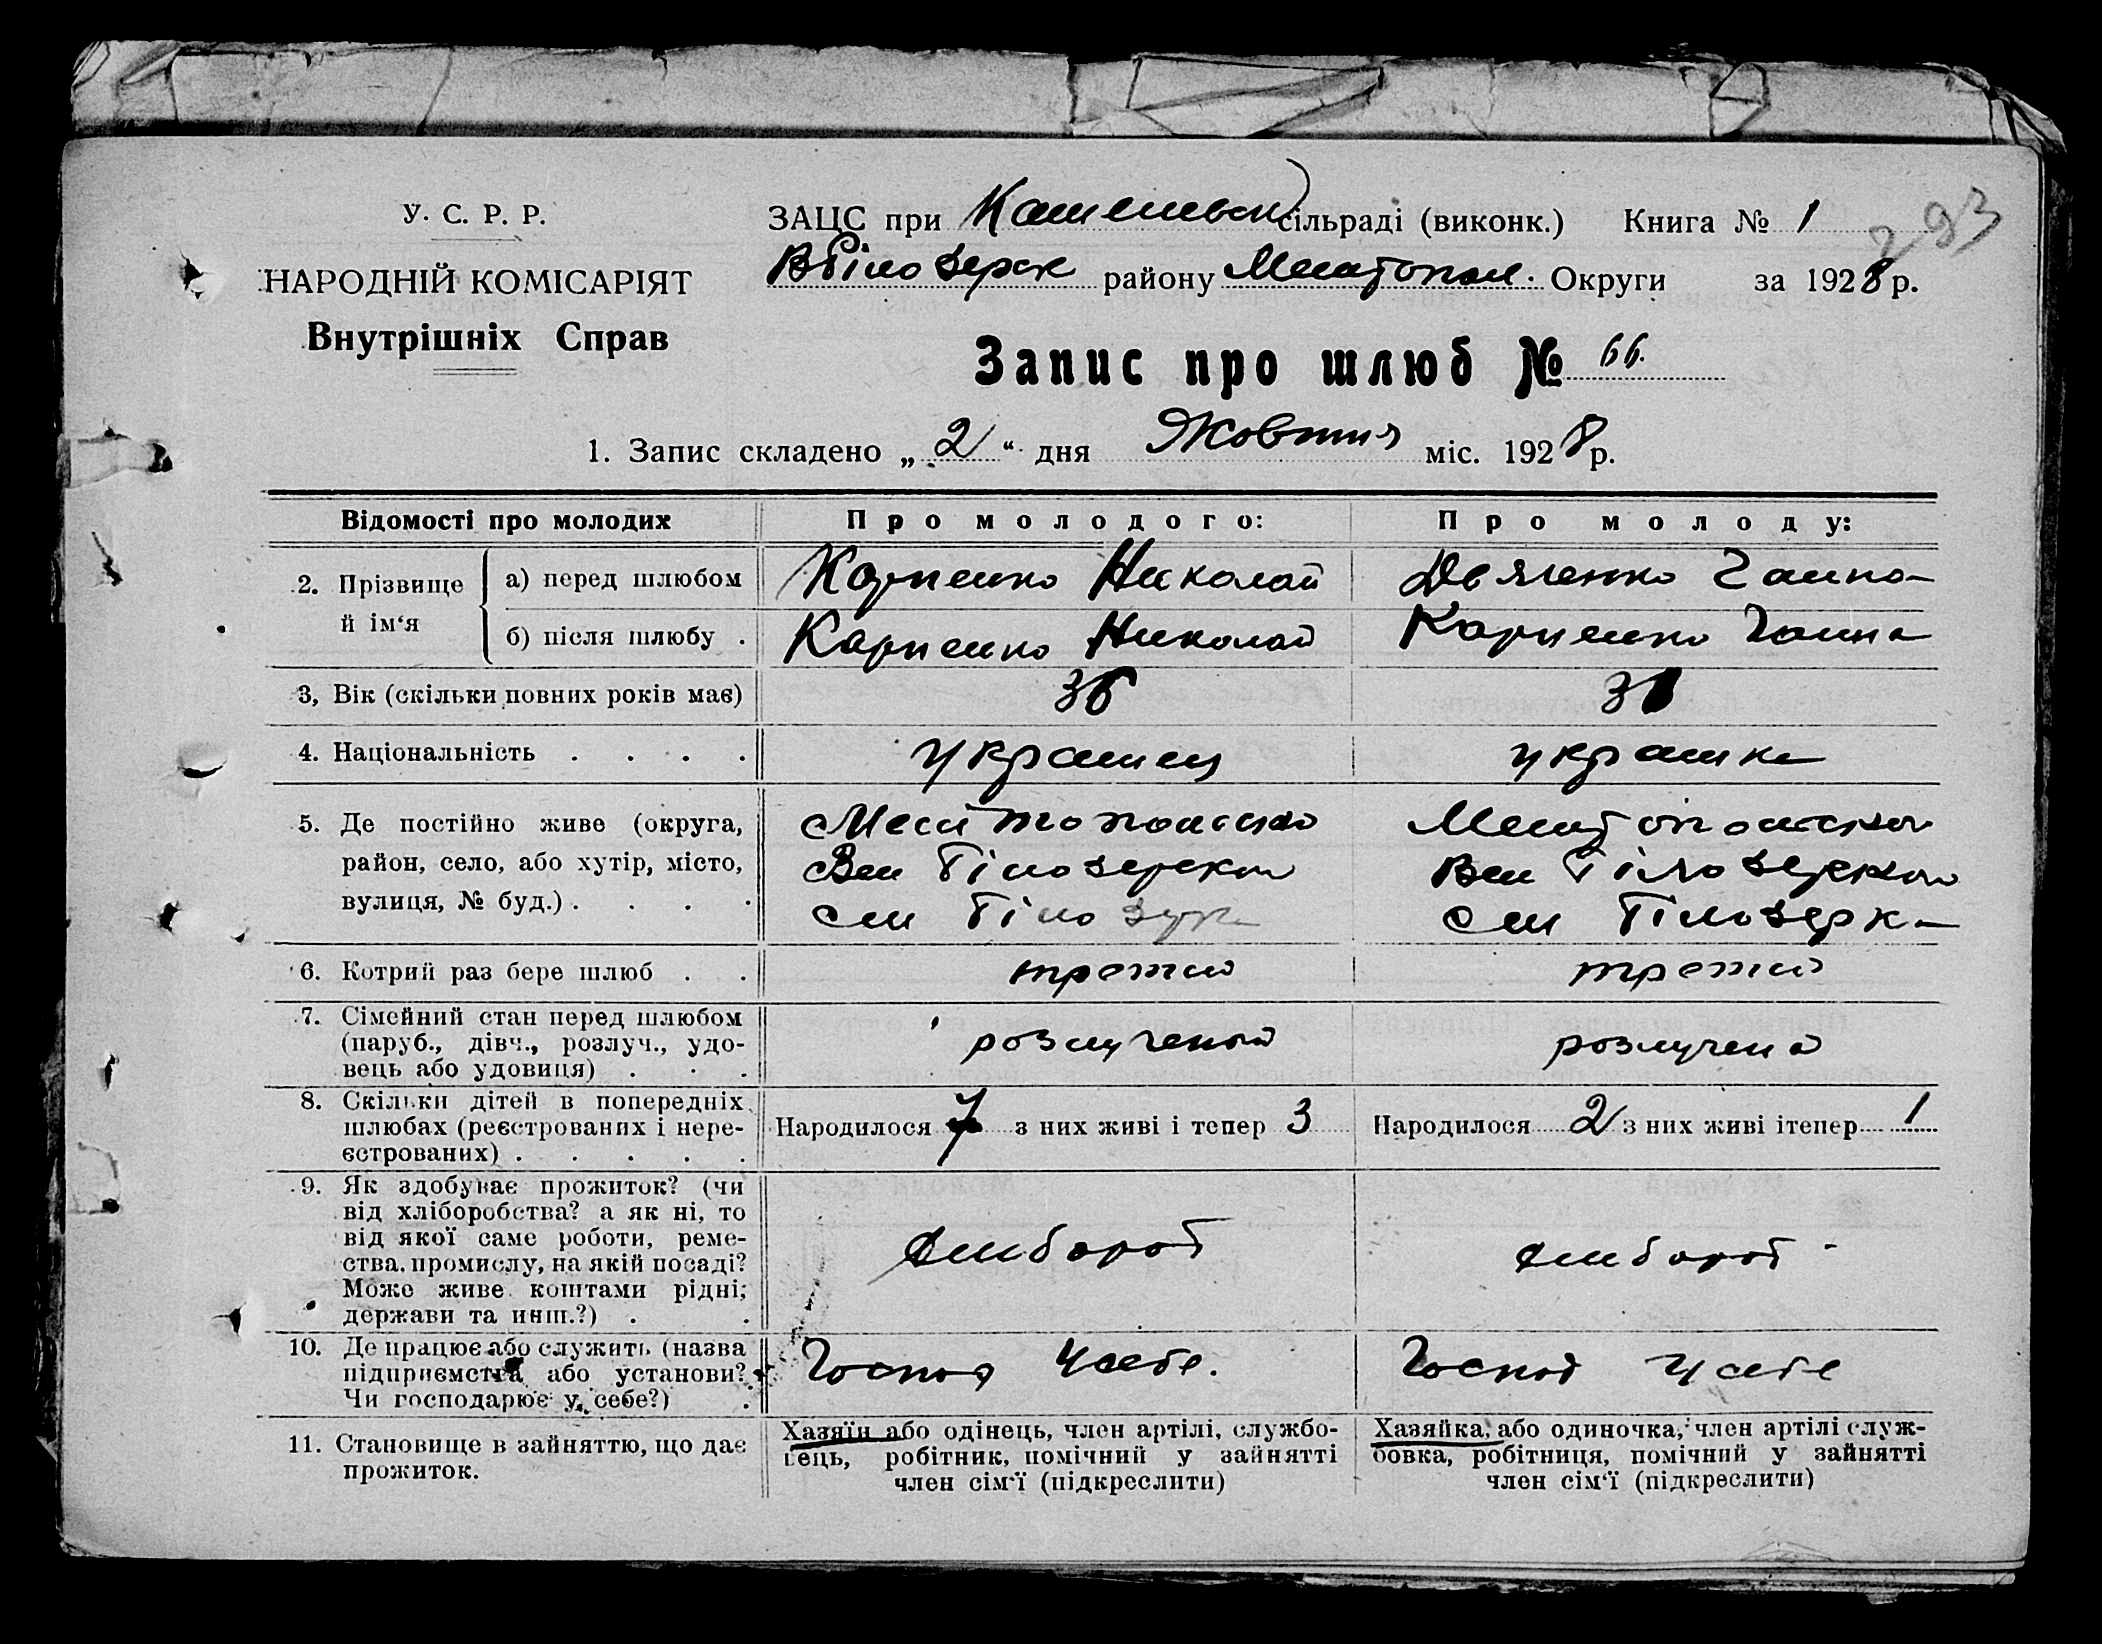 293
У. С. Р. Р.
НАРОДНІЙ КОМІСАРІЯТ
Внутрішніх Справ
ЗАЦС при сільраді (виконк.) Книга № 1
ВБілозерск району Мелітопол. Округи за 1928 р.
Запис про шлюб № 66.
1. Запис складено „ 2 “ дня Жовтня міс. 1928 р.
Відомості про молодих Про молодого: Про молоду:
2. Прізвище й ім‘я
а) перед шлюбом Карпенко Николай Дяченко Ганна
б) після шлюбу . Карпенко Николай Карпенко Ганна
3, Вік (скільки повних років має) 36
4. Національність . . . . украинец украинка
5. Де постійно живе (округа,
район, село, або хутір, місто,
вулиця, № буд.) . . . .
Мелітопольско
Вел Білозерком
сел Білозерка
Мелитопольском
Вел Білозерком
сел Білозерка
6. Котрий раз бере шлюб . . третий третий
7. Сімейний стан перед шлюбом
(паруб., дівч., розлуч., удо-
вець або удовиця) . . .
розлученый розлучена
8. Скільки дітей в попередніх
шлюбах (реєстрованих і нере-
єстрованих) . . . . .
Народилося 7 з них живі і тепер 3 Народилося 2 з них живі ітепер 1
9. Як здобуває прожиток? (чи
від хліборобства? а як ні, то
від якої саме роботи, реме-
ства, промислу, на якій посаді?
Може живе коштами рідні;
держави та инш.?) . .
хлибороб хлибороб
10. Де працює або служить (назва
підприємства або установи?
Чи господарює у себе?) .
Господ у себе. Господ у себе
11. Становище в зайняттю, що дає
прожиток.
Хазяїн або одінець, член артілі, службо-
вець, робітник, помічний у зайнятті
член сім‘ї (підкреслити)
Хазяйка, або одиночка, член артілі служ-
бовка, робітниця, помічний у зайнятті
член сім‘ї (підкреслити)